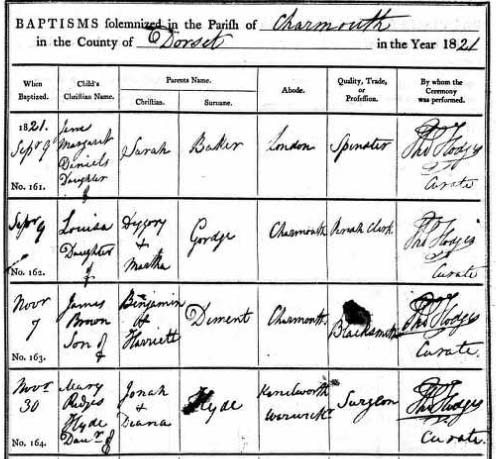 BAPTISMS solemnized in the Parish of Charmouth
in the County of Dorset in the Year 1821
When Baptized.
Child's Christian Name.
Parents Name.
Christian.
Surname.
Abode.
Quality, Trade, or Profession.
By whom the Ceremony was performed.
1821.
Septr 9
No. 161.
Jane
Margaret
Daniels
Daughter
of
Sarah
Baker
London
Spinster
Thos Hodges
Curate
Septr 9
No. 162.
Louisa
Daughter
of
Diggory
&
Martha
Gordge
Charmouth
Parish Clerk
Thos Hodges
Curate
Novr
7
No. 163.
James
Brown
Son of
Benjamin
&
Harriett
Dement
Charmouth
Blacksmith
Thos Hodges
Curate.
Novr
30
No. 164.
Mary
Hyde
Daur of
Jonah
&
Diana
Hyde
Kenilworth
Warwick
Surgeon
Thos Hodges
Curate.